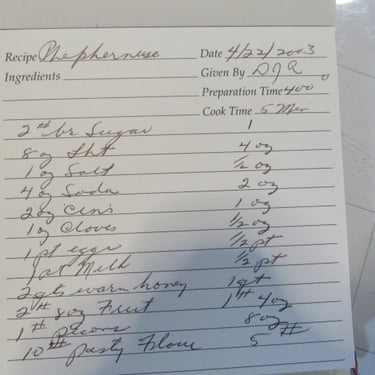 Recipe Phephernuse Date 4/22/2003
Ingredients: Given By DJR
Preparation Time 400°
Cook Time 5 Min
2 # br Sugar 1
8 oz Sht 4 oz
1 oz Salt ½ oz
4 oz Soda 2 oz
2 oz Cin's 1 oz
1 oz Cloves ½ oz
1 pt eggs ½ pt
1 pt Milk ½ pt
2 qts warm honey 1 qt
2 # 8 oz Fruit 1 # 4 oz
1 # pecans 8 oz
10 # pasty Flour 5 #